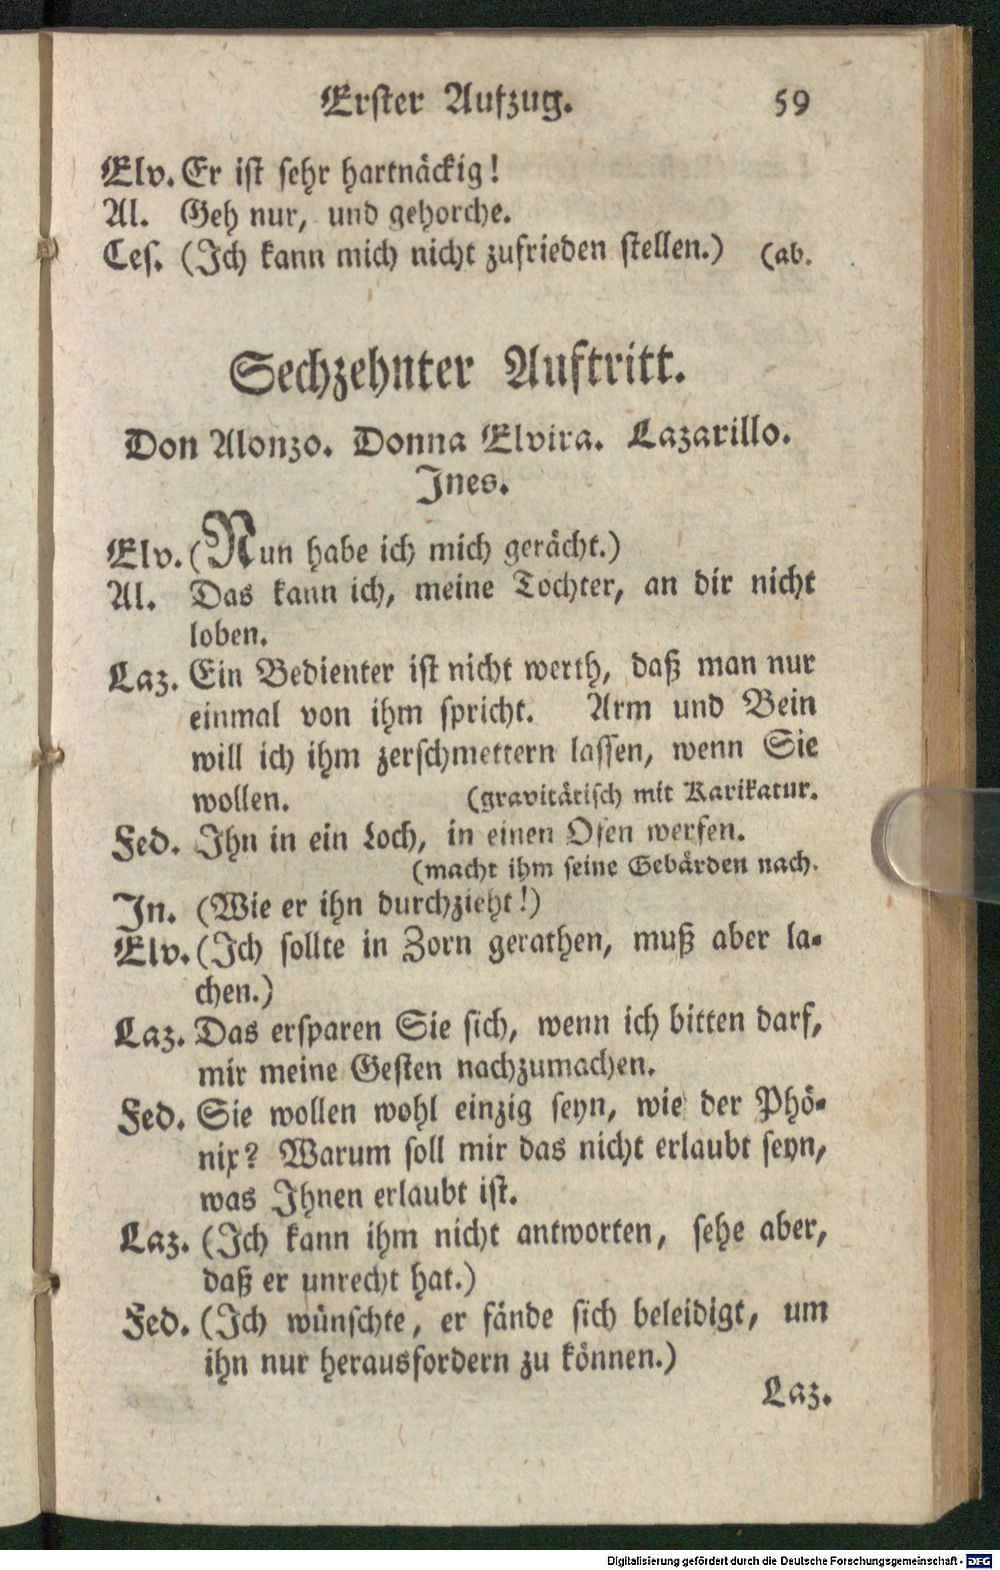 Erster Aufzug. 59
Elv. Er ist sehr hartnäckig!
Al. Geh nur, und gehorche.
Ces. (Ich kann mich nicht zufrieden stellen.) (ab.
Sechzehnter Auftritt.
Don Alonzo. Donna Elvira. Lazarillo.
Ines.
Elv. (Nun habe ich mich gerächt.)
Al. Das kann ich, meine Tochter, an dir nicht
loben.
Laz. Ein Bedienter ist nicht werth, daß man nur
einmal von ihm spricht. Arm und Bein
will ich ihm zerschmettern lassen, wenn Sie
wollen. (gravitätisch mit Karikatur.
Fed. Ihn in ein Loch, in einen Ofen werfen.
(macht ihm seine Gebärden nach.
In. (Wie er ihn durchzieht!)
Elv. (Ich sollte in Zorn gerathen, muß aber la-
chen.)
Laz. Das ersparen Sie sich, wenn ich bitten darf,
mir meine Gesten nachzumachen.
Fed. Sie wollen wohl einzig seyn, wie der Phö-
nix? Warum soll mir das nicht erlaubt seyn,
was Ihnen erlaubt ist.
Laz. (Ich kann ihm nicht antworten, sehe aber,
daß er unrecht hat.)
Fed. (Ich wünschte, er fände sich beleidigt, um
ihn nur herausfordern zu können.)
Laz.
Digitalisierung gefördert durch die Deutsche Forschungsgemeinschaft - DFG